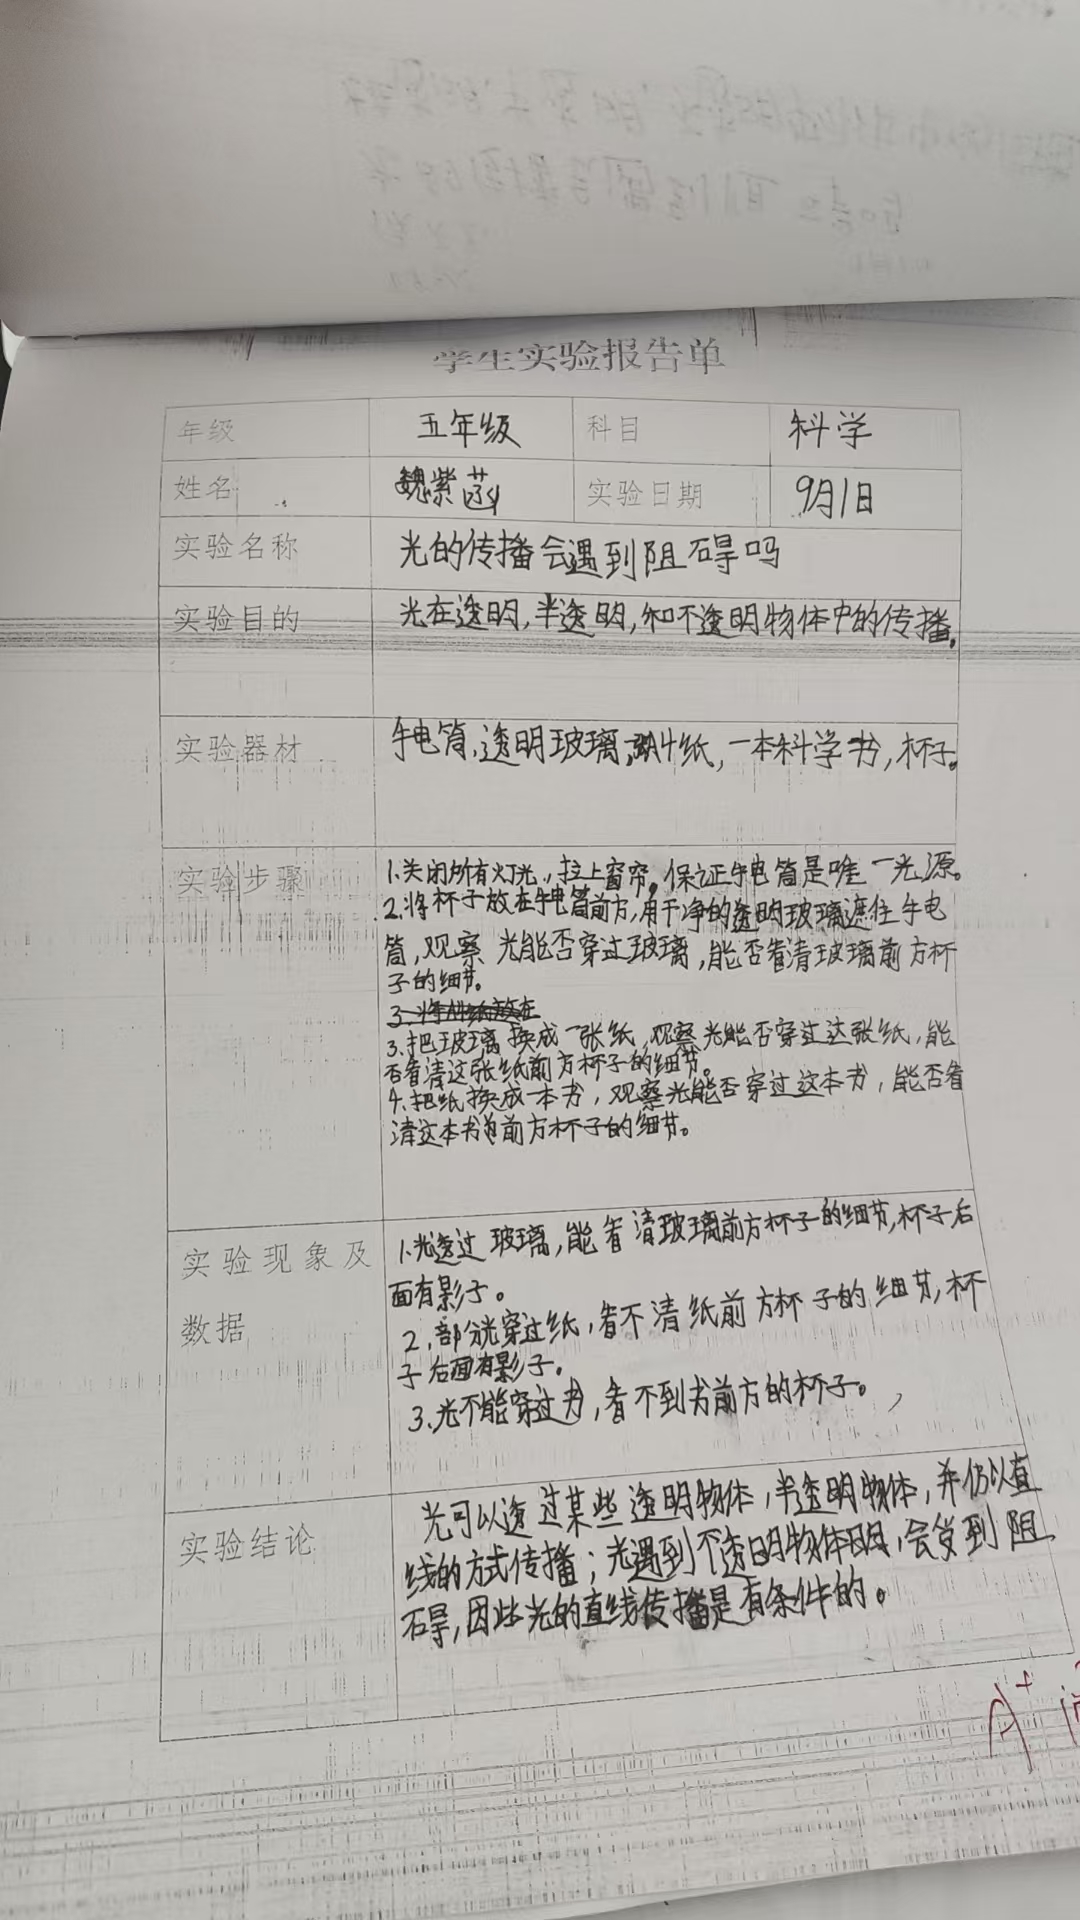 学生实验报告单
年级 五年级 科目 科学
姓名 魏紫菡 实验日期 9月1日
实验名称 光的传播会遇到阻碍吗
实验目的 光在透明,半透明,和不透明物体中的传播。
实验器材 手电筒,透明玻璃,纸,一本科学书,杯子。
实验步骤 1.关闭所有灯光,拉上窗帘。保证手电筒是唯一光源。
2.将杯子放在手电筒前方,用干净的透明玻璃遮住手电
筒,观察光能否穿过玻璃,能否看清玻璃前方杯
子的细节。
3.把玻璃换成一张纸,观察光能否穿过这张纸,能
否看清这张纸前方杯子的细节。
4.把纸换成一本书,观察光能否穿过这本书,能否看
清这本书前方杯子的细节。
实验现象及 1.光透过玻璃,能看清玻璃前方杯子的细节,杯子后
面有影子。
数据 2.部分光穿过纸,看不清纸前方杯子的细节,杯
子后面有影子。
3.光不能穿过书,看不到书前方的杯子。
实验结论 光可以透过某些透明物体,半透明物体,并仍以直
线的方式传播;光遇到不透明物体时,会受到阻
碍,因此光的直线传播是有条件的。
A+